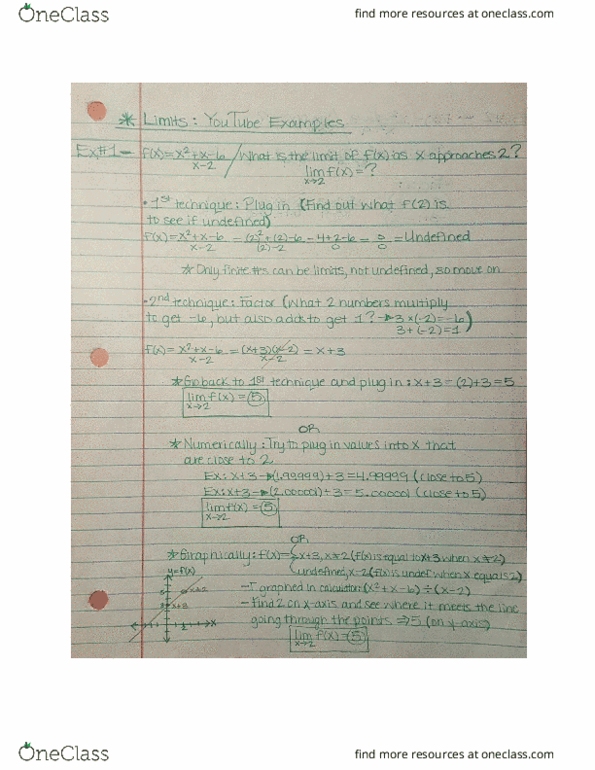 OneClass
find more resources at oneclass.com
* Limits: YouTube Examples
Ex#1- f(x)=x²+x-6 / x-2 / What is the limit of f(x) as x approaches 2?
lim x→2 f(x)=?
• 1st technique: Plug in (Find out what f(2) is
to see if undefined)
f(x)=x²+x-6 / x-2 = (2)²+(2)-6 / (2)-2 = 4+2-6 / 0 = 0/0 = Undefined
* Only finite #s can be limits, not undefined, so move on
• 2nd technique: Factor (What 2 numbers multiply
to get -6, but also adds to get 1? → 3×(-2)=-6
3+(-2)=1)
f(x)= x²+x-6 / x-2 = (x+3)(x-2) / x-2 = x+3
* Go back to 1st technique and plug in: x+3=(2)+3=5
lim x→2 f(x)=5
OR
* Numerically: Try to plug in values into x that
are close to 2
Ex: x+3 → (1.99999)+3=4.99999 (close to 5)
Ex: x+3 → (2.00001)+3=5.00001 (close to 5)
lim x→2 f(x)=5
OR
* Graphically: f(x)= { x+3, x≠2 (f(x) is equal to x+3 when x≠2)
undefined, x=2 (f(x) is under when x equals 2)
y=f(x)
x+3
x
- I graphed in calculator: (x²+x-6)÷(x-2)
- Find 2 on x-axis and see where it meets the line
going through the points. ⇒ 5 (on y-axis)
lim x→2 f(x)=5
OneClass
find more resources at oneclass.com